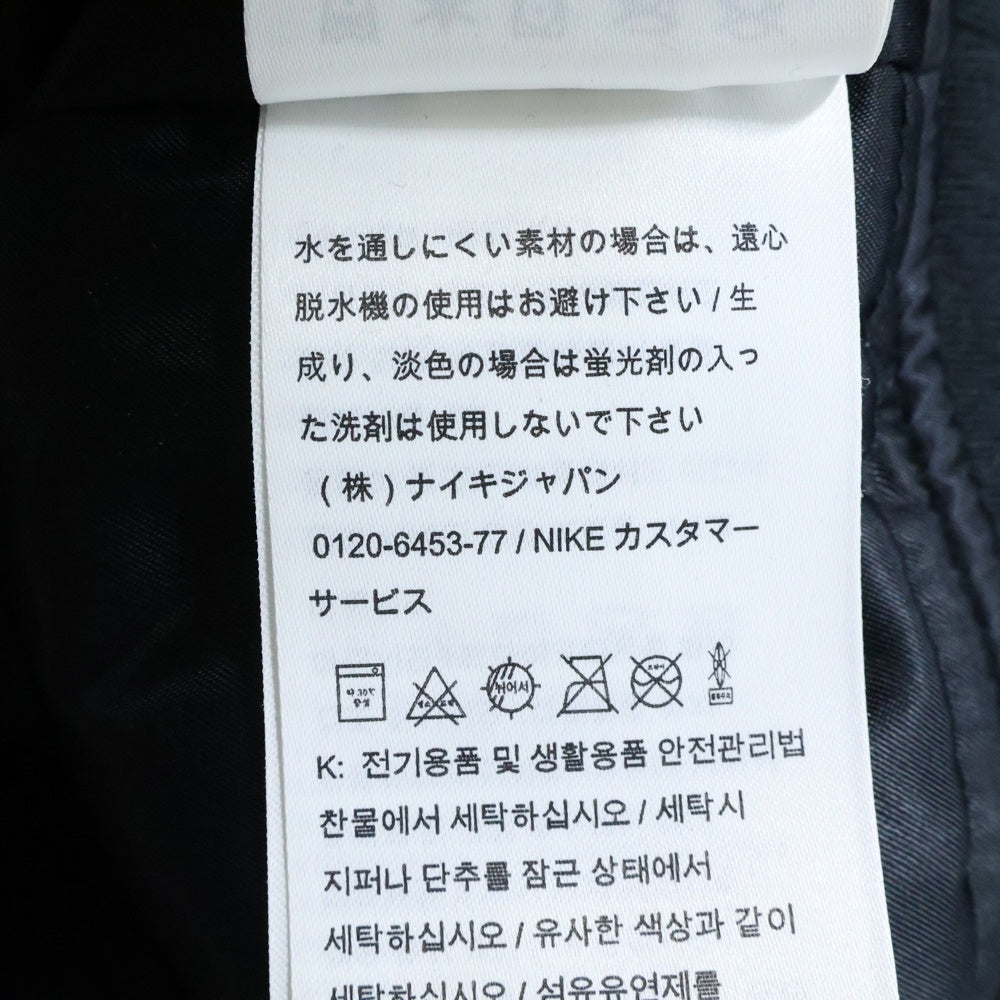 水を通しにくい素材の場合は、遠心
脱水機の使用はお避け下さい / 生
成り、淡色の場合は蛍光剤の入っ
た洗剤は使用しないで下さい
(株) ナイキジャパン
0120-6453-77 / NIKE カスタマー
サービス
약 30℃ 중성
뉘어서
K: 전기용품 및 생활용품 안전관리법
찬물에서 세탁하십시오 / 세탁시
지퍼나 단추를 잠근 상태에서
세탁하십시오 / 유사한 색상과 같이
세탁하십시오 / 섬유유연제를